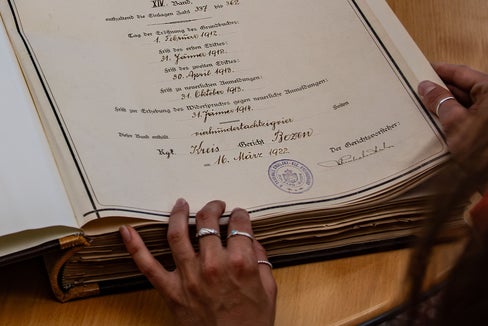 XIV. Band,
enthaltend die Einlagen Zahl 337 bis 362
Tag der Eröffnung des Grundbuches
1. Februar 1912.
Frist des ersten Ediktes
31. Jänner 1913.
Frist des zweiten Ediktes
30. April 1913.
Frist zu neuerlichen Anmeldungen:
31. Oktober 1913.
Frist zur Erhebung des Widerspruches gegen neuerliche Anmeldungen:
31. Jänner 1914.
Dieser Band enthält vierhundertachtzigvier Seiten
Kgl. Kreis Gericht Bozen
am 16. März 1922
Der Gerichtsvorsteher: